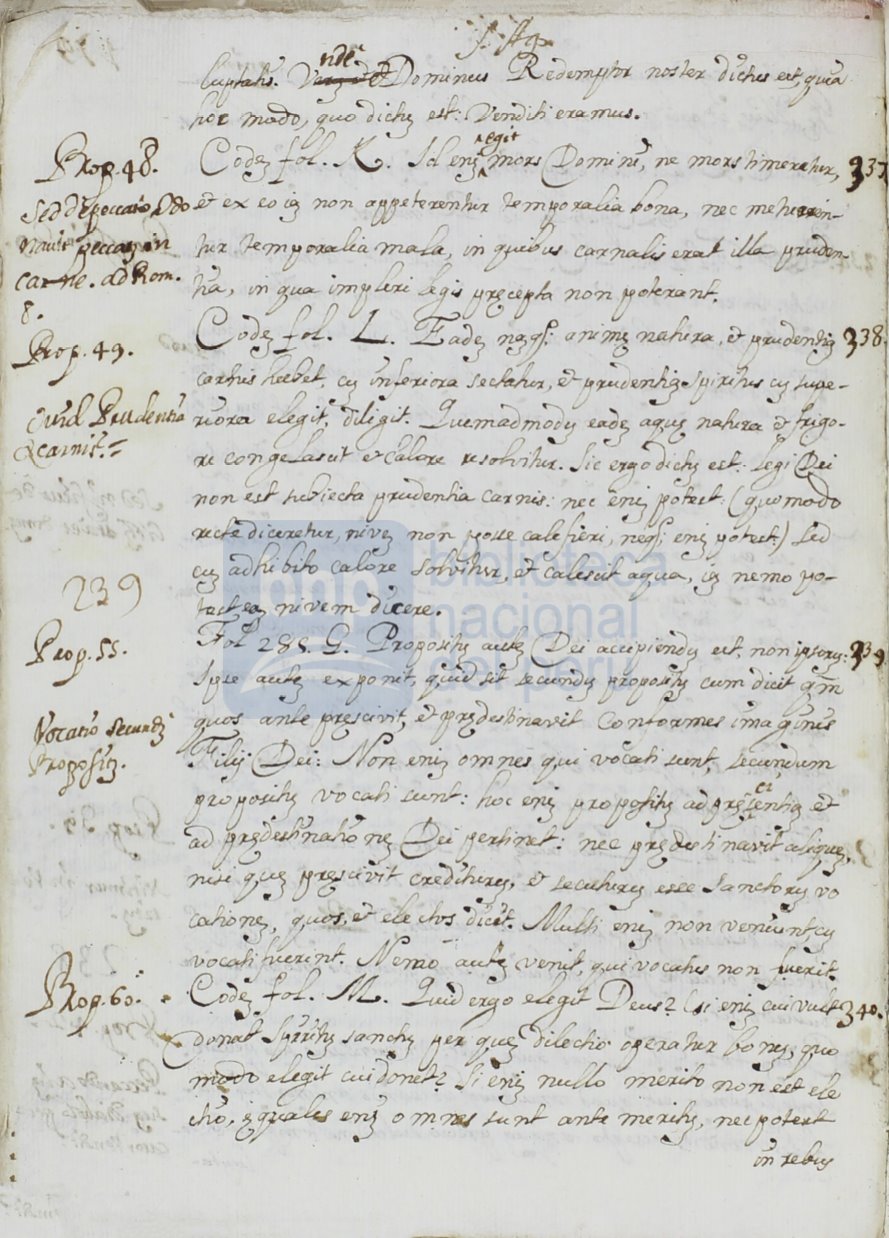 S. Ag.
luptatis. Vnde Dominus Redemptor noster dictus est, quia
hoc modo, quo dictũ est: Venditi eramus.
Prop. 48.
Sed de peccato
peccatũ in
carne. ad Rom.
8.
Codẽ fol. K. Id enĩ egit mors Domini, ne mors timeretur,
337
et ex eo iã non appeterentur temporalia bona, nec metueren-
tur temporalia mala, in quibus carnalis erat illa pruden-
tia, in qua impleri legis pręcepta non poterant.
Prop. 49.
Quid Prudentia
carnis.=
Codẽ fol. L. Eadẽ nãq; animę natura, et prudentiã
338.
carnis habet, cũ inferiora sectatur, et prudentiã Spiritus cũ supe-
riora elegit, diligit. Quemadmodũ eadẽ aquę natura et frigo-
re congelascit et calore resolvitur. Sic ergo dictũ est: legi Dei
non est subiecta prudentia carnis: nec enĩ potest: (quomodo
recte diceretur, nivẽ non posse calefieri, neq; enĩ potest:) Sed
cũ adhibito calore solvitur, et calescit aqua, iã nemo po-
test eã nivem dicere.
239
Prop. 55.
Vocatio secundũ
Propositũ.
Fol 288. G. Propositũ autẽ Dei accipiendũ est, non ipsorũ:
339
Ipse autẽ exponit, quid sit secundũ propositũ cum dicit qm̃
quos ante pręscivit, et prędestinavit conformes imaginis
Filij Dei: Non enĩ omnes qui vocati sunt, secundum
propositũ vocati sunt: hoc enĩ propositũ ad pręscientiã et
ad prędestinationẽ Dei pertinet: nec prędestinavit aliquẽ,
nisi quẽ pręscivit crediturũ, et secuturũ esse Sanctorũ vo
cationẽ, quos, et electos dicit. Multi enĩ non veniunt, cũ
vocati fuerint. Nemo autẽ venit, qui vocatus non fuerit.
Prop. 60.
Codẽ fol. M. Quid ergo elegit Deus? Si enĩ cui vult
340.
donat Spiritũ sanctũ per quẽ dilectio operatur bonũ, quo
modo elegit cui donet? Si enĩ nullo merito non est ele
ctio, ęquales enĩ omnes sunt ante meritũ, nec potest
in rebus